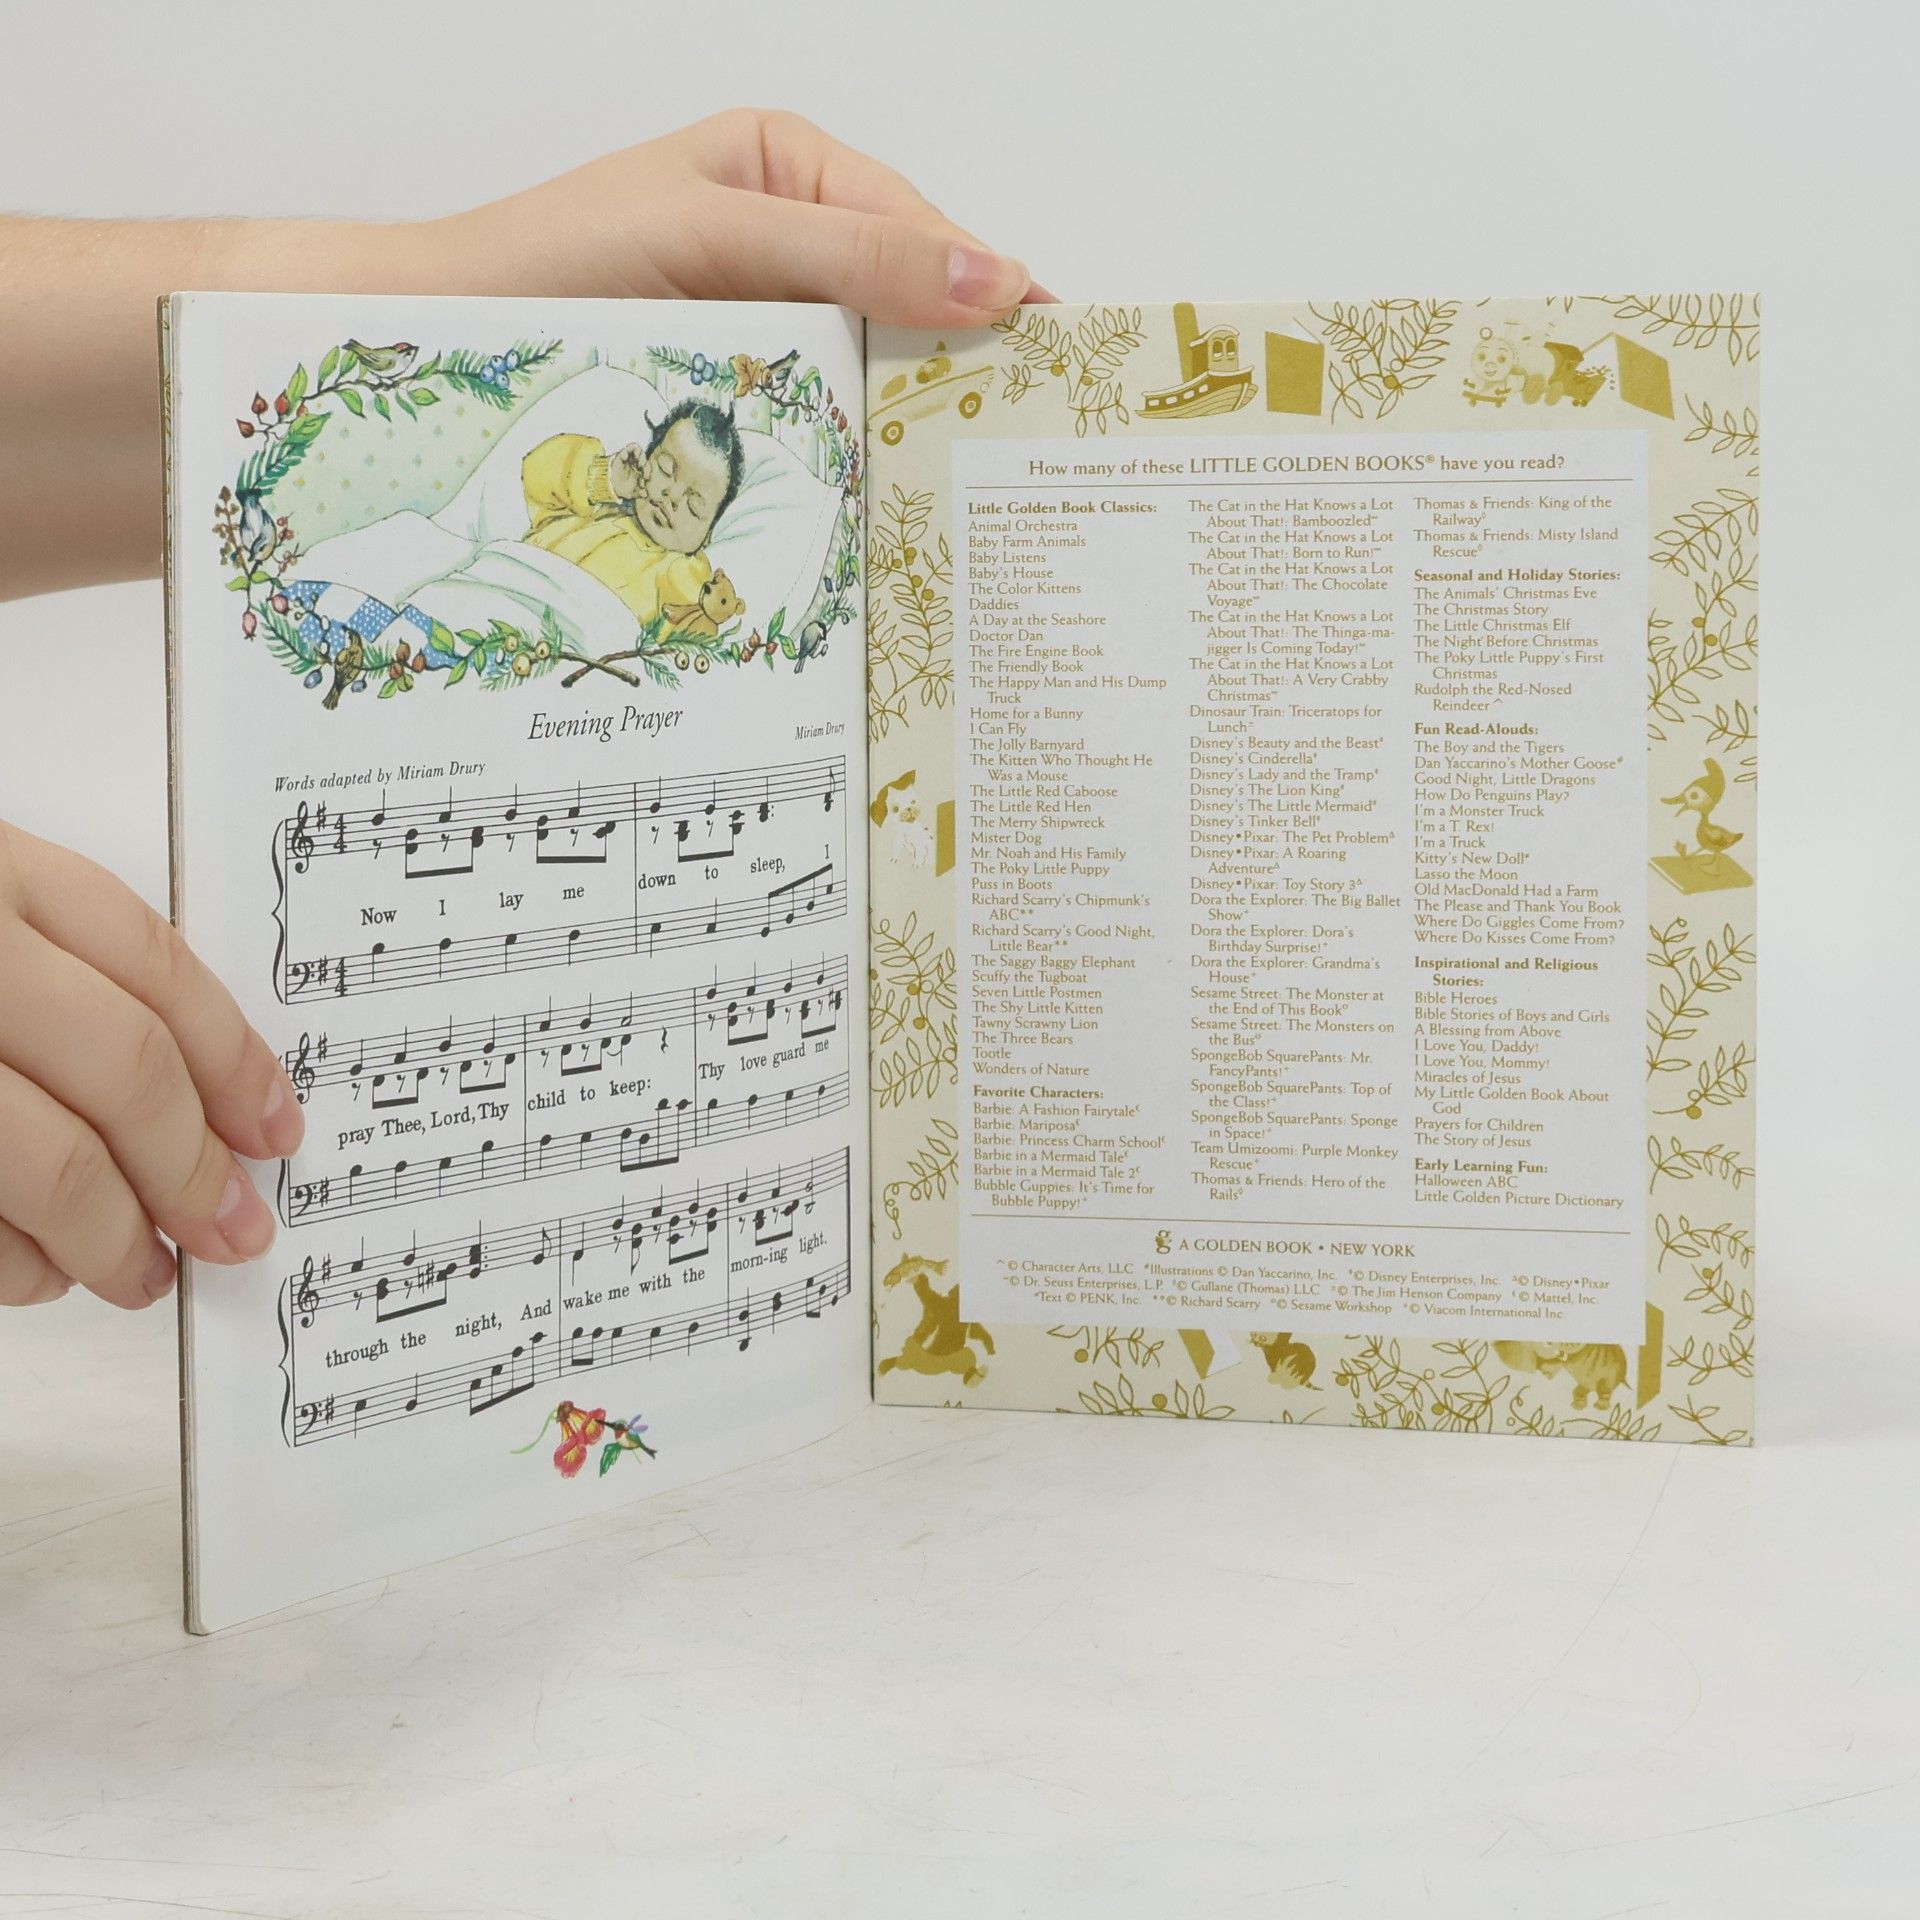 Evening Prayer
Miriam Drury
Words adapted by Miriam Drury
Now I lay me down to sleep, I
pray Thee, Lord, Thy child to keep: Thy love guard me
through the night, And wake me with the morn-ing light.
How many of these LITTLE GOLDEN BOOKS® have you read?
Little Golden Book Classics:
Animal Orchestra
Baby Farm Animals
Baby Listens
Baby's House
The Color Kittens
Daddies
A Day at the Seashore
Doctor Dan
The Fire Engine Book
The Friendly Book
The Happy Man and His Dump
Truck
Home for a Bunny
I Can Fly
The Jolly Barnyard
The Kitten Who Thought He
Was a Mouse
The Little Red Caboose
The Little Red Hen
The Merry Shipwreck
Mister Dog
Mr. Noah and His Family
The Poky Little Puppy
Puss in Boots
Richard Scarry's Chipmunk's
ABC**
Richard Scarry's Good Night,
Little Bear**
The Saggy Baggy Elephant
Scuffy the Tugboat
Seven Little Postmen
The Shy Little Kitten
Tawny Scrawny Lion
The Three Bears
Tootle
Wonders of Nature
Favorite Characters:
Barbie: A Fashion Fairytale€
Barbie: Mariposa€
Barbie: Princess Charm School€
Barbie in a Mermaid Tale€
Barbie in a Mermaid Tale 2€
Bubble Guppies: It's Time for
Bubble Puppy!+
The Cat in the Hat Knows a Lot
About That!: Bamboozled~
The Cat in the Hat Knows a Lot
About That!: Born to Run!~
The Cat in the Hat Knows a Lot
About That!: The Chocolate
Voyage~
The Cat in the Hat Knows a Lot
About That!: The Thinga-ma-
jigger Is Coming Today!~
The Cat in the Hat Knows a Lot
About That!: A Very Crabby
Christmas~
Dinosaur Train: Triceratops for
Lunch±
Disney's Beauty and the Beast‡
Disney's Cinderella‡
Disney's Lady and the Tramp‡
Disney's The Lion King‡
Disney's The Little Mermaid‡
Disney's Tinker Bell‡
Disney•Pixar: The Pet Problem∆
Disney•Pixar: A Roaring
Adventure∆
Disney•Pixar: Toy Story 3∆
Dora the Explorer: The Big Ballet
Show+
Dora the Explorer: Dora's
Birthday Surprise!+
Dora the Explorer: Grandma's
House+
Sesame Street: The Monster at
the End of This Book°
Sesame Street: The Monsters on
the Bus°
SpongeBob SquarePants: Mr.
FancyPants!+
SpongeBob SquarePants: Top of
the Class!+
SpongeBob SquarePants: Sponge
in Space!+
Team Umizoomi: Purple Monkey
Rescue+
Thomas & Friends: Hero of the
Rails◊
Thomas & Friends: King of the
Railway◊
Thomas & Friends: Misty Island
Rescue◊
Seasonal and Holiday Stories:
The Animals' Christmas Eve
The Christmas Story
The Little Christmas Elf
The Night Before Christmas
The Poky Little Puppy's First
Christmas
Rudolph the Red-Nosed
Reindeer^
Fun Read-Alouds:
The Boy and the Tigers
Dan Yaccarino's Mother Goose#
Good Night, Little Dragons
How Do Penguins Play?
I'm a Monster Truck
I'm a T. Rex!
I'm a Truck
Kitty's New Doll≠
Lasso the Moon
Old MacDonald Had a Farm
The Please and Thank You Book
Where Do Giggles Come From?
Where Do Kisses Come From?
Inspirational and Religious
Stories:
Bible Heroes
Bible Stories of Boys and Girls
A Blessing from Above
I Love You, Daddy!
I Love You, Mommy!
Miracles of Jesus
My Little Golden Book About
God
Prayers for Children
The Story of Jesus
Early Learning Fun:
Halloween ABC
Little Golden Picture Dictionary
A GOLDEN BOOK • NEW YORK
^© Character Arts, LLC #Illustrations © Dan Yaccarino, Inc. ‡© Disney Enterprises, Inc. ∆© Disney•Pixar
~© Dr. Seuss Enterprises, L.P. ◊© Gullane (Thomas) LLC ±© The Jim Henson Company €© Mattel, Inc.
≠Text © PENK, Inc. **© Richard Scarry °© Sesame Workshop +© Viacom International Inc.